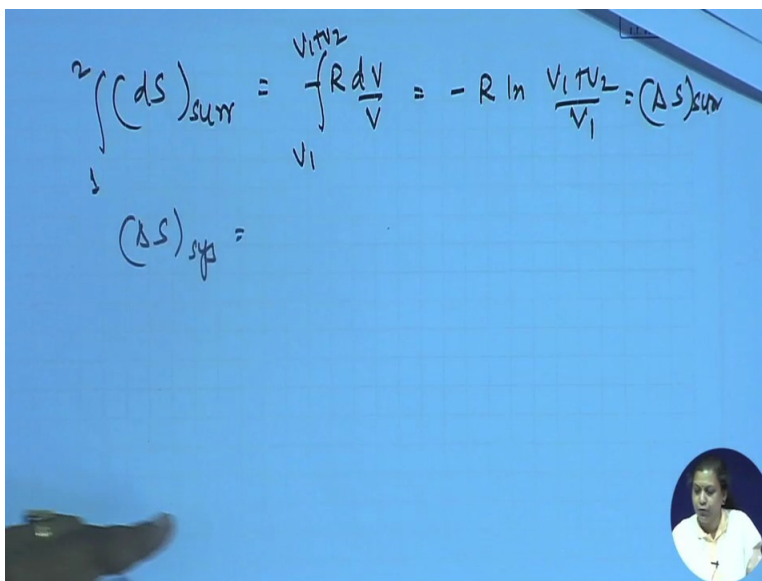 ∫₁² (dS)surr = ∫_V1^V1+V2 -R dV/V = - R ln (V1+V2)/V1 = (ΔS)surr
(ΔS)sys =